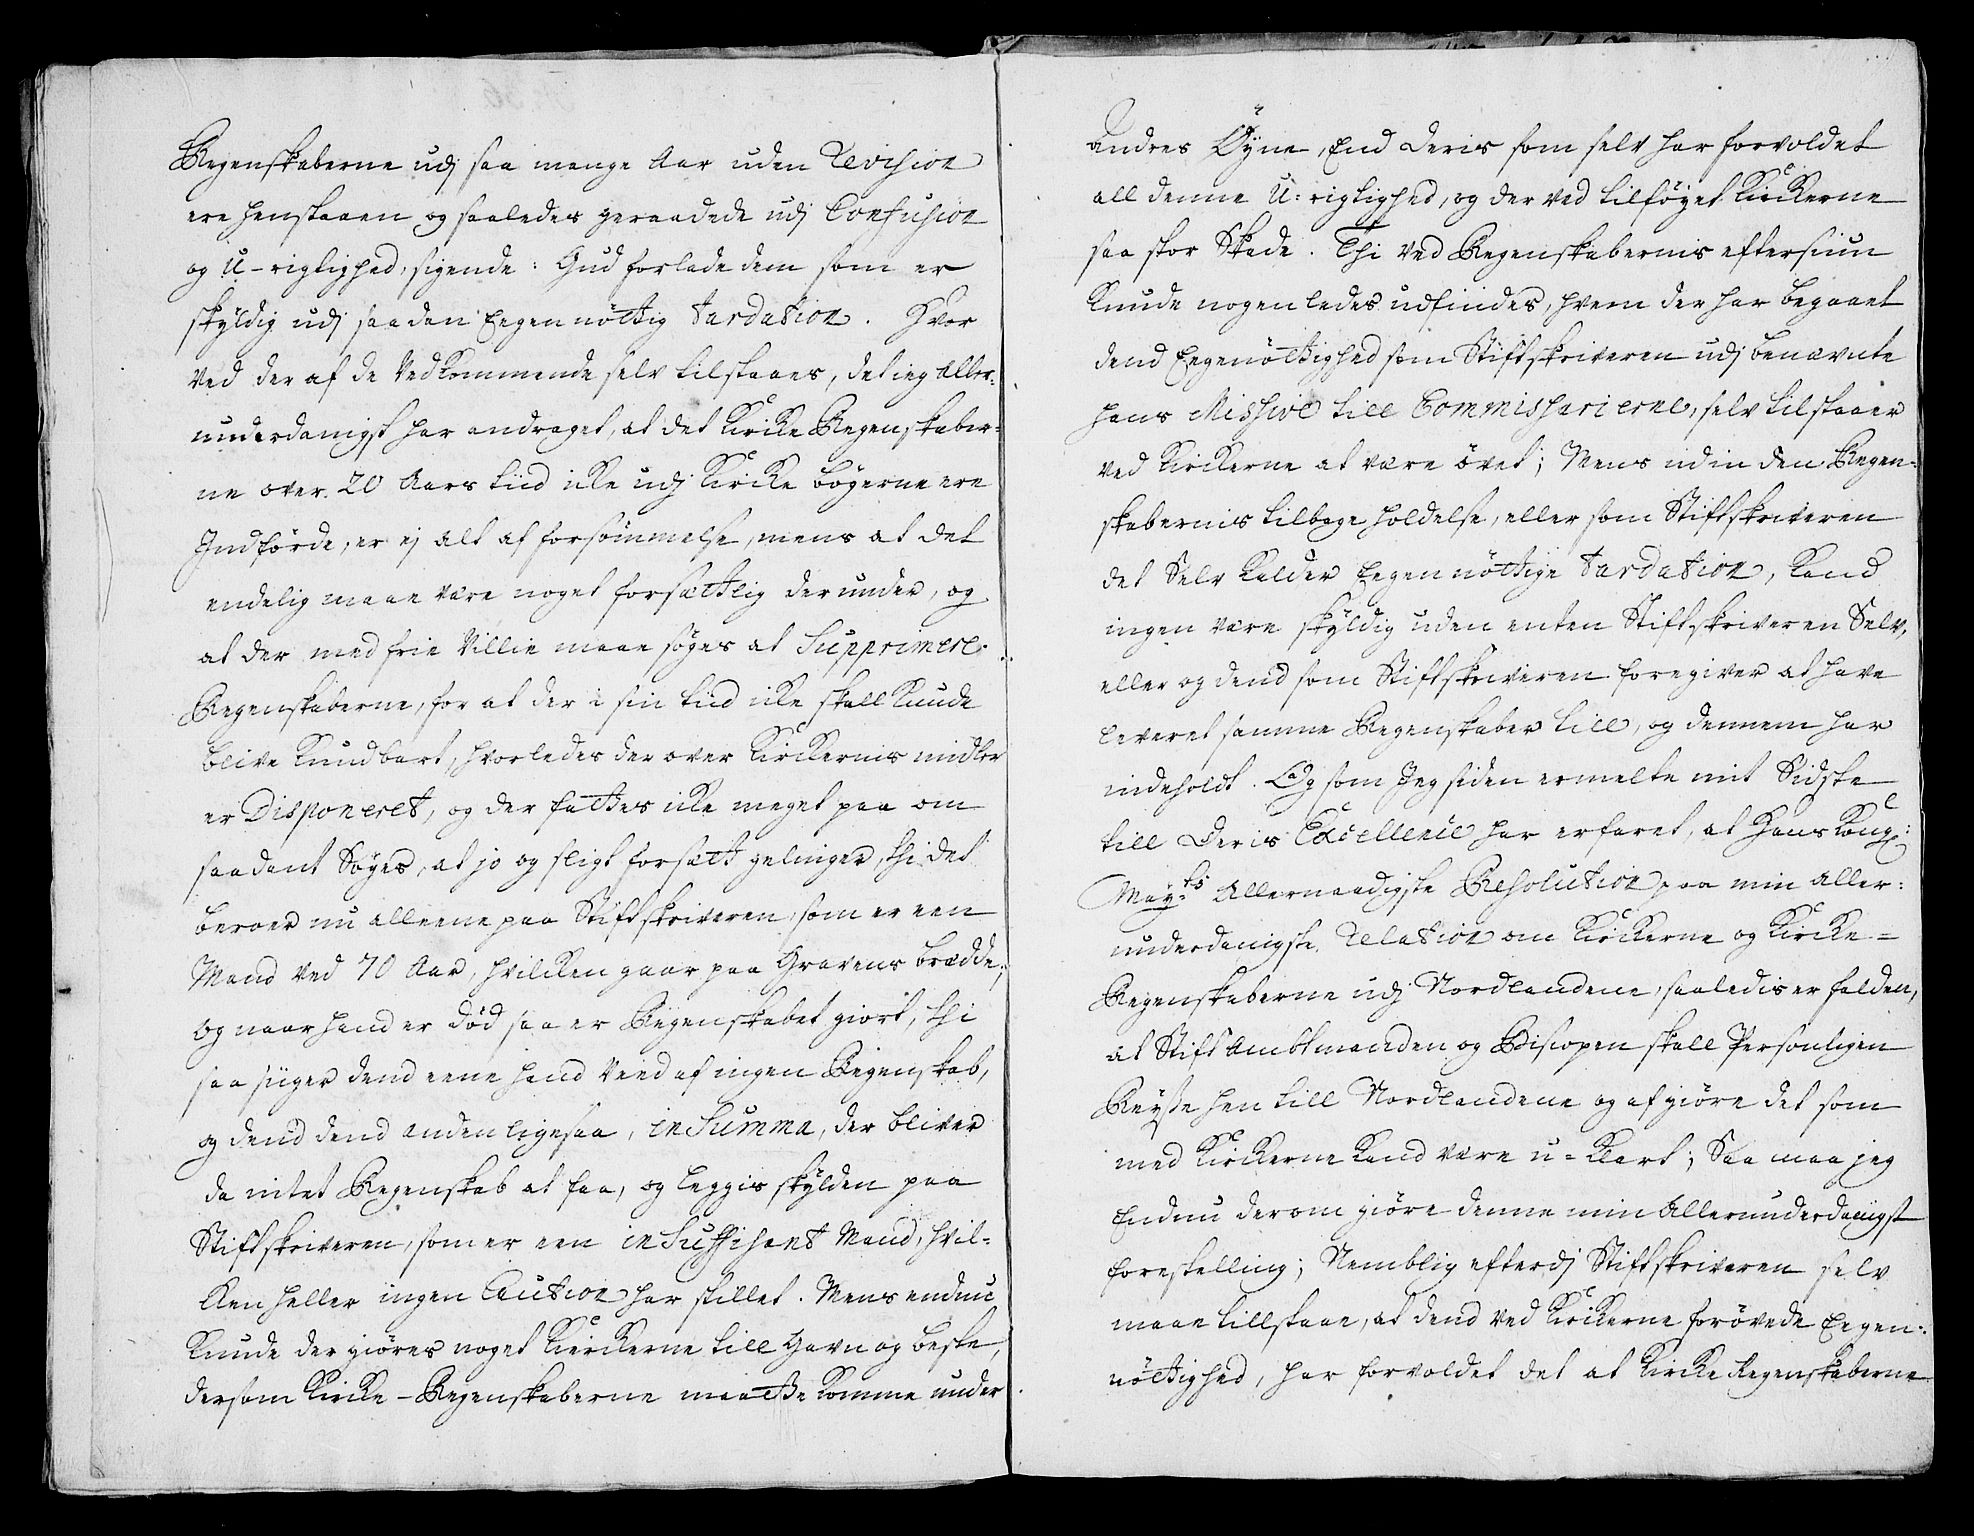 Regenskaberne udj saa mange Aar uden Revision
ere henstaaen og saaledes geraadede udj Confusion
og U-rigtighed, sigende: Gud forlade dem som er
skÿldig udj saadan Eegennöttig tardation. Hvor
ved der af de Vedkommende selv tilstaaes, det ieg Aller-
underdanigst har andraget, at det Kircke Regenskaber-
ne over 20 Aars tiid icke udj Kircke bögerne ere
Indförde, er ej alt af forsömmelse, mens at det
endelig maae være noget forsættlig derunder, og
at der med frie Villie maae söges at Supprimere
Regenskaberne, for at der i sin tiid icke skall kunde
blive kundbart, hvorledes der over Kirckernis midler
er Disponeret, og der fattes icke meget paa om
saadant Söges, at jo og sligt forsætt gelinger, thi det
beroer nu alleene paa Stiftskriveren, som er een
Mand ved 70 Aar, hvilcken gaar paa Gravens bredde;
og naar hand er död saa er Regenskabet giort, thi
saa siiger dend eene hand Veed af ingen Regenskab,
og dend dend anden ligesaa, in Summa, der bliver
da intet Regenskab at faa, og leggis skÿlden paa
Stiftskriveren, som er een insuffisant Mand, hvil-
cken heller ingen Caution har stillet. Mens endnu
kunde der giöres noget Kirckerne till Gavn og beste,
dersom Kircke-Regenskaberne maatte komme under
andres Öÿne, End deris som selv har forvoldet
all denne U-rigtighed, og der ved tilföÿet Kirckerne
saa stor Skade. Thi ved Regenskabernis eftersiun
kunde nogenledes udfindes, hvem der har begaaet
dend Eegenöttighed som Stiftskriveren udj benævnte
hans Missive till Commissarierne, selv tilstaaer
ved Kirckerne at være övet; Mens udin den Regen-
skabernis tilbage holdelse, eller som Stiftskriveren
det Selv kalder Eegennöttige tardation, kand
ingen være skÿldig uden enten Stiftskriveren Selv,
eller og dend som Stiftskriveren foregiver at have
leveret samme Regenskaber till, og dennem har
indeholdt. Og som Jeg siden ermelte mit Sidste
till Deris Excellence har erfaret, at Hans Kong:
Maÿts Allernaadigste Resolution paa min Aller-
underdanigste Relation om Kirckerne og Kircke-
Regenskaberne udj Nordlandene, saaledis er falden,
at Stift Ambtmanden og Biscopen skall Personligen
Reÿse hen till Nordlandene og afgiöre det som
med Kirckerne kand være u-klart; Saa maa jeg
Endnu derom giöre denne min Allerunderdanigst
forestelling; Nemblig efterdj Stiftskriveren selv
maae tillstaae, at dend ved Kirckerne forövede Eegen-
nöttighed, har forvoldet det at Kircke Regenskaberne